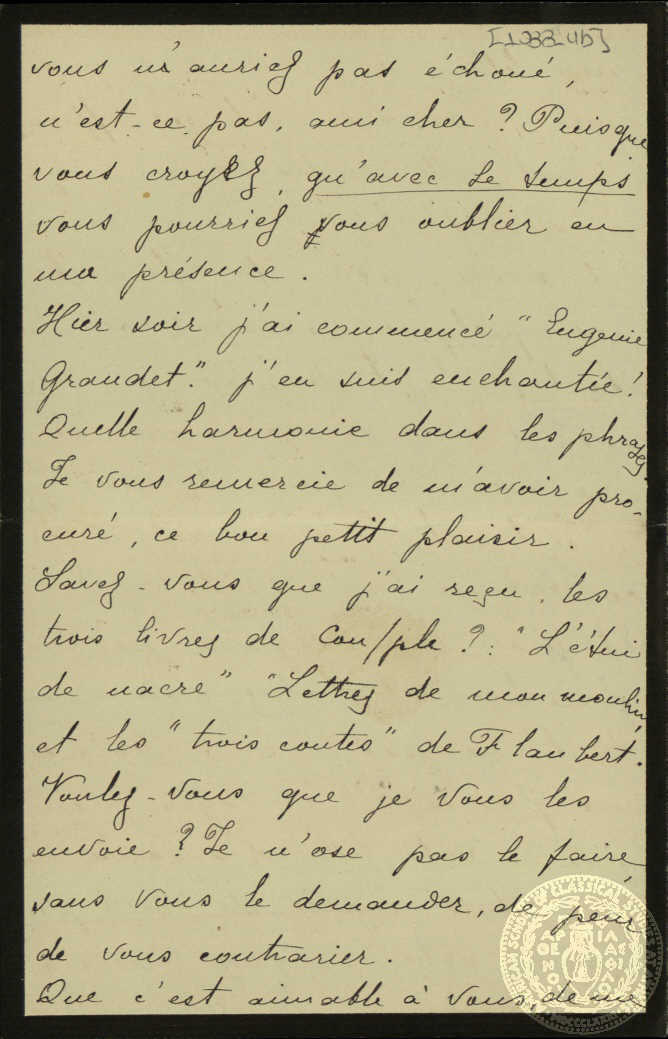 vous n'auriez pas échoué,
n'est-ce pas, ami cher? Puisque
vous croyez, qu'avec le temps
vous pourriez vous oublier en
ma présence.
Hier soir j'ai commencé "Eugenie
Grandet". j'en suis enchantée!
Quelle harmonie dans les phrases
Je vous remercie de m'avoir pro-
curé, ce bon petit plaisir.
Savez-vous que j'ai reçu, les
trois livres de ?: "L'étui
de nacre" "Lettres de mon moulin"
et les "trois contes" de Flaubert.
Voulez-vous que je vous les
envoie? Je n'ose pas le faire
sans vous le demander, de peur
de vous contrarier.
Que c'est aimable à vous, de me
AMERICAN SCHOOL OF CLASSICAL